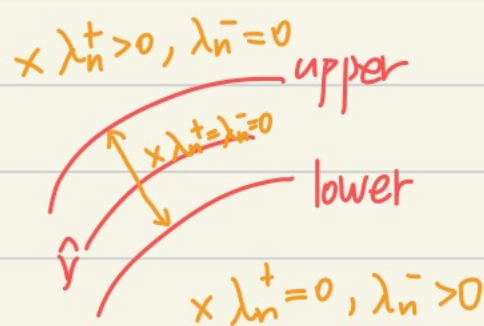 × λₙ⁺>0, λₙ⁻=0
upper
× λₙ⁺=λₙ⁻=0
lower
ŷ
× λₙ⁺=0, λₙ⁻>0